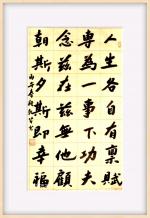 人生各自有稟賦
專為一事下功夫
念兹在兹無他顧
朝斯夕斯即幸福